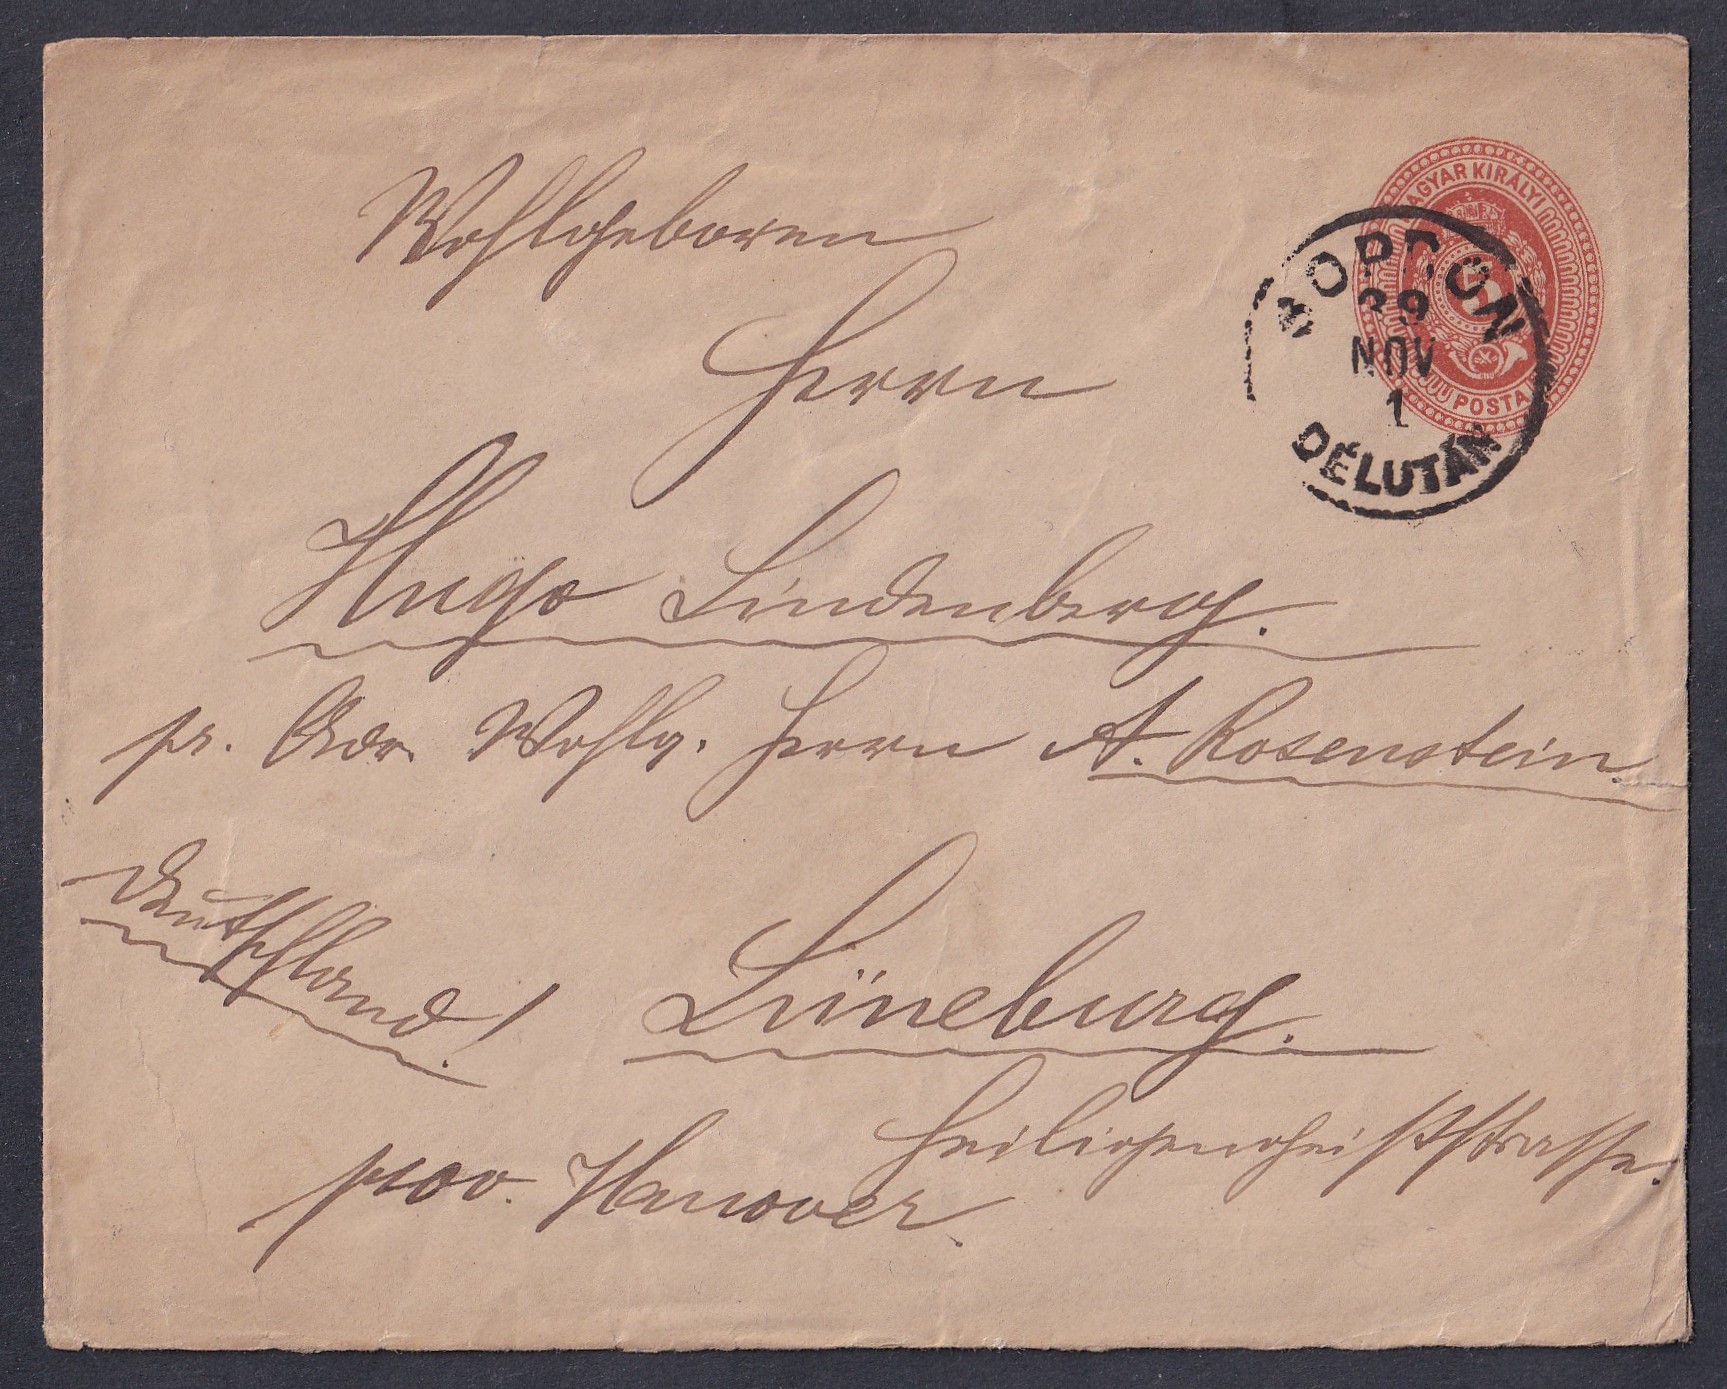 MAGYAR KIRÁLYI
5
POSTA
SOPRON
89
NOV
1
DÉLUTÁN
Wohlgeboren
Herrn
Hugo Lindenberg.
pr. Adr. Wohlg. Herrn A. Rosenstein.
Deutschland!
Lüneburg.
Heiligengeiststrasse.
prov. Hanover.